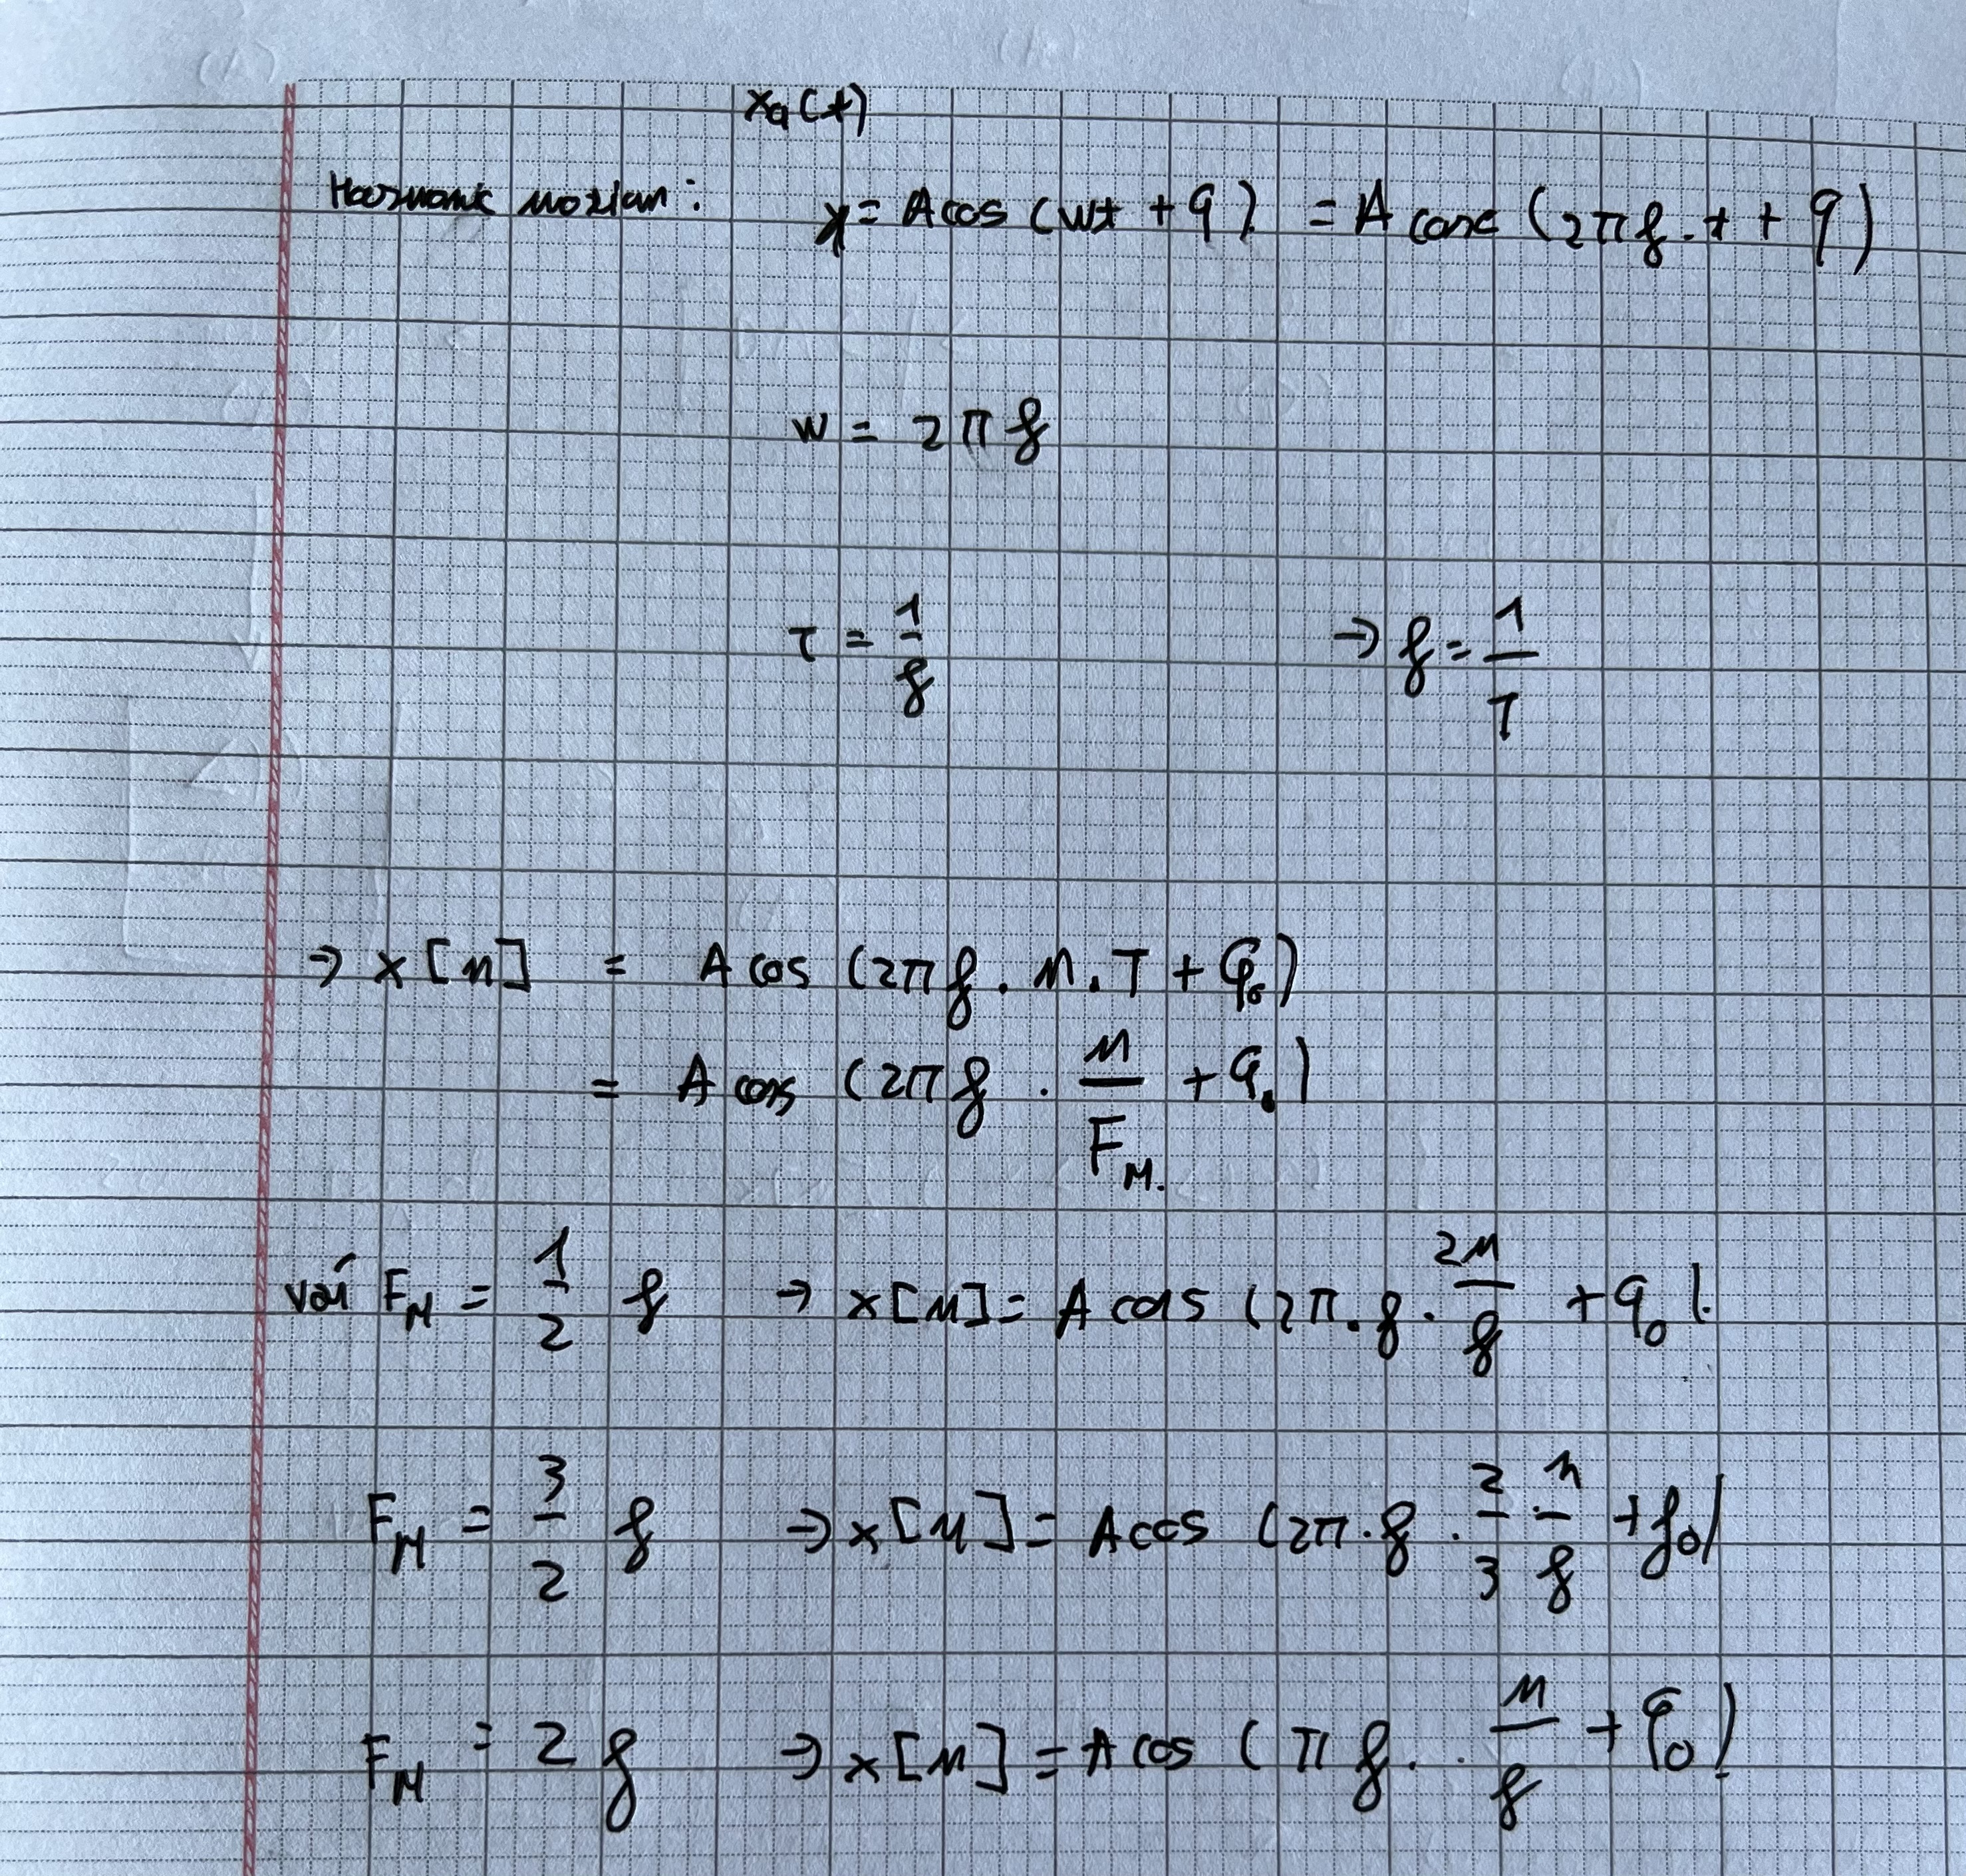 xₐ(t)
Harmonic motion: x = A cos (wt + φ) = A cos (2πf.t + φ)
w = 2πf
T = 1/f → f = 1/T
→ x[n] = A cos (2πf. n.T + φ₀)
= A cos (2πf . n/F_M. + φ₀)
với F_M = 1/2 f → x[n] = A cos (2π.f. 2n/f + φ₀).
F_M = 3/2 f → x[n] = A cos (2π.f . 2/3 . n/f + φ₀)
F_M = 2f → x[n] = A cos (πf. . n/f + φ₀)